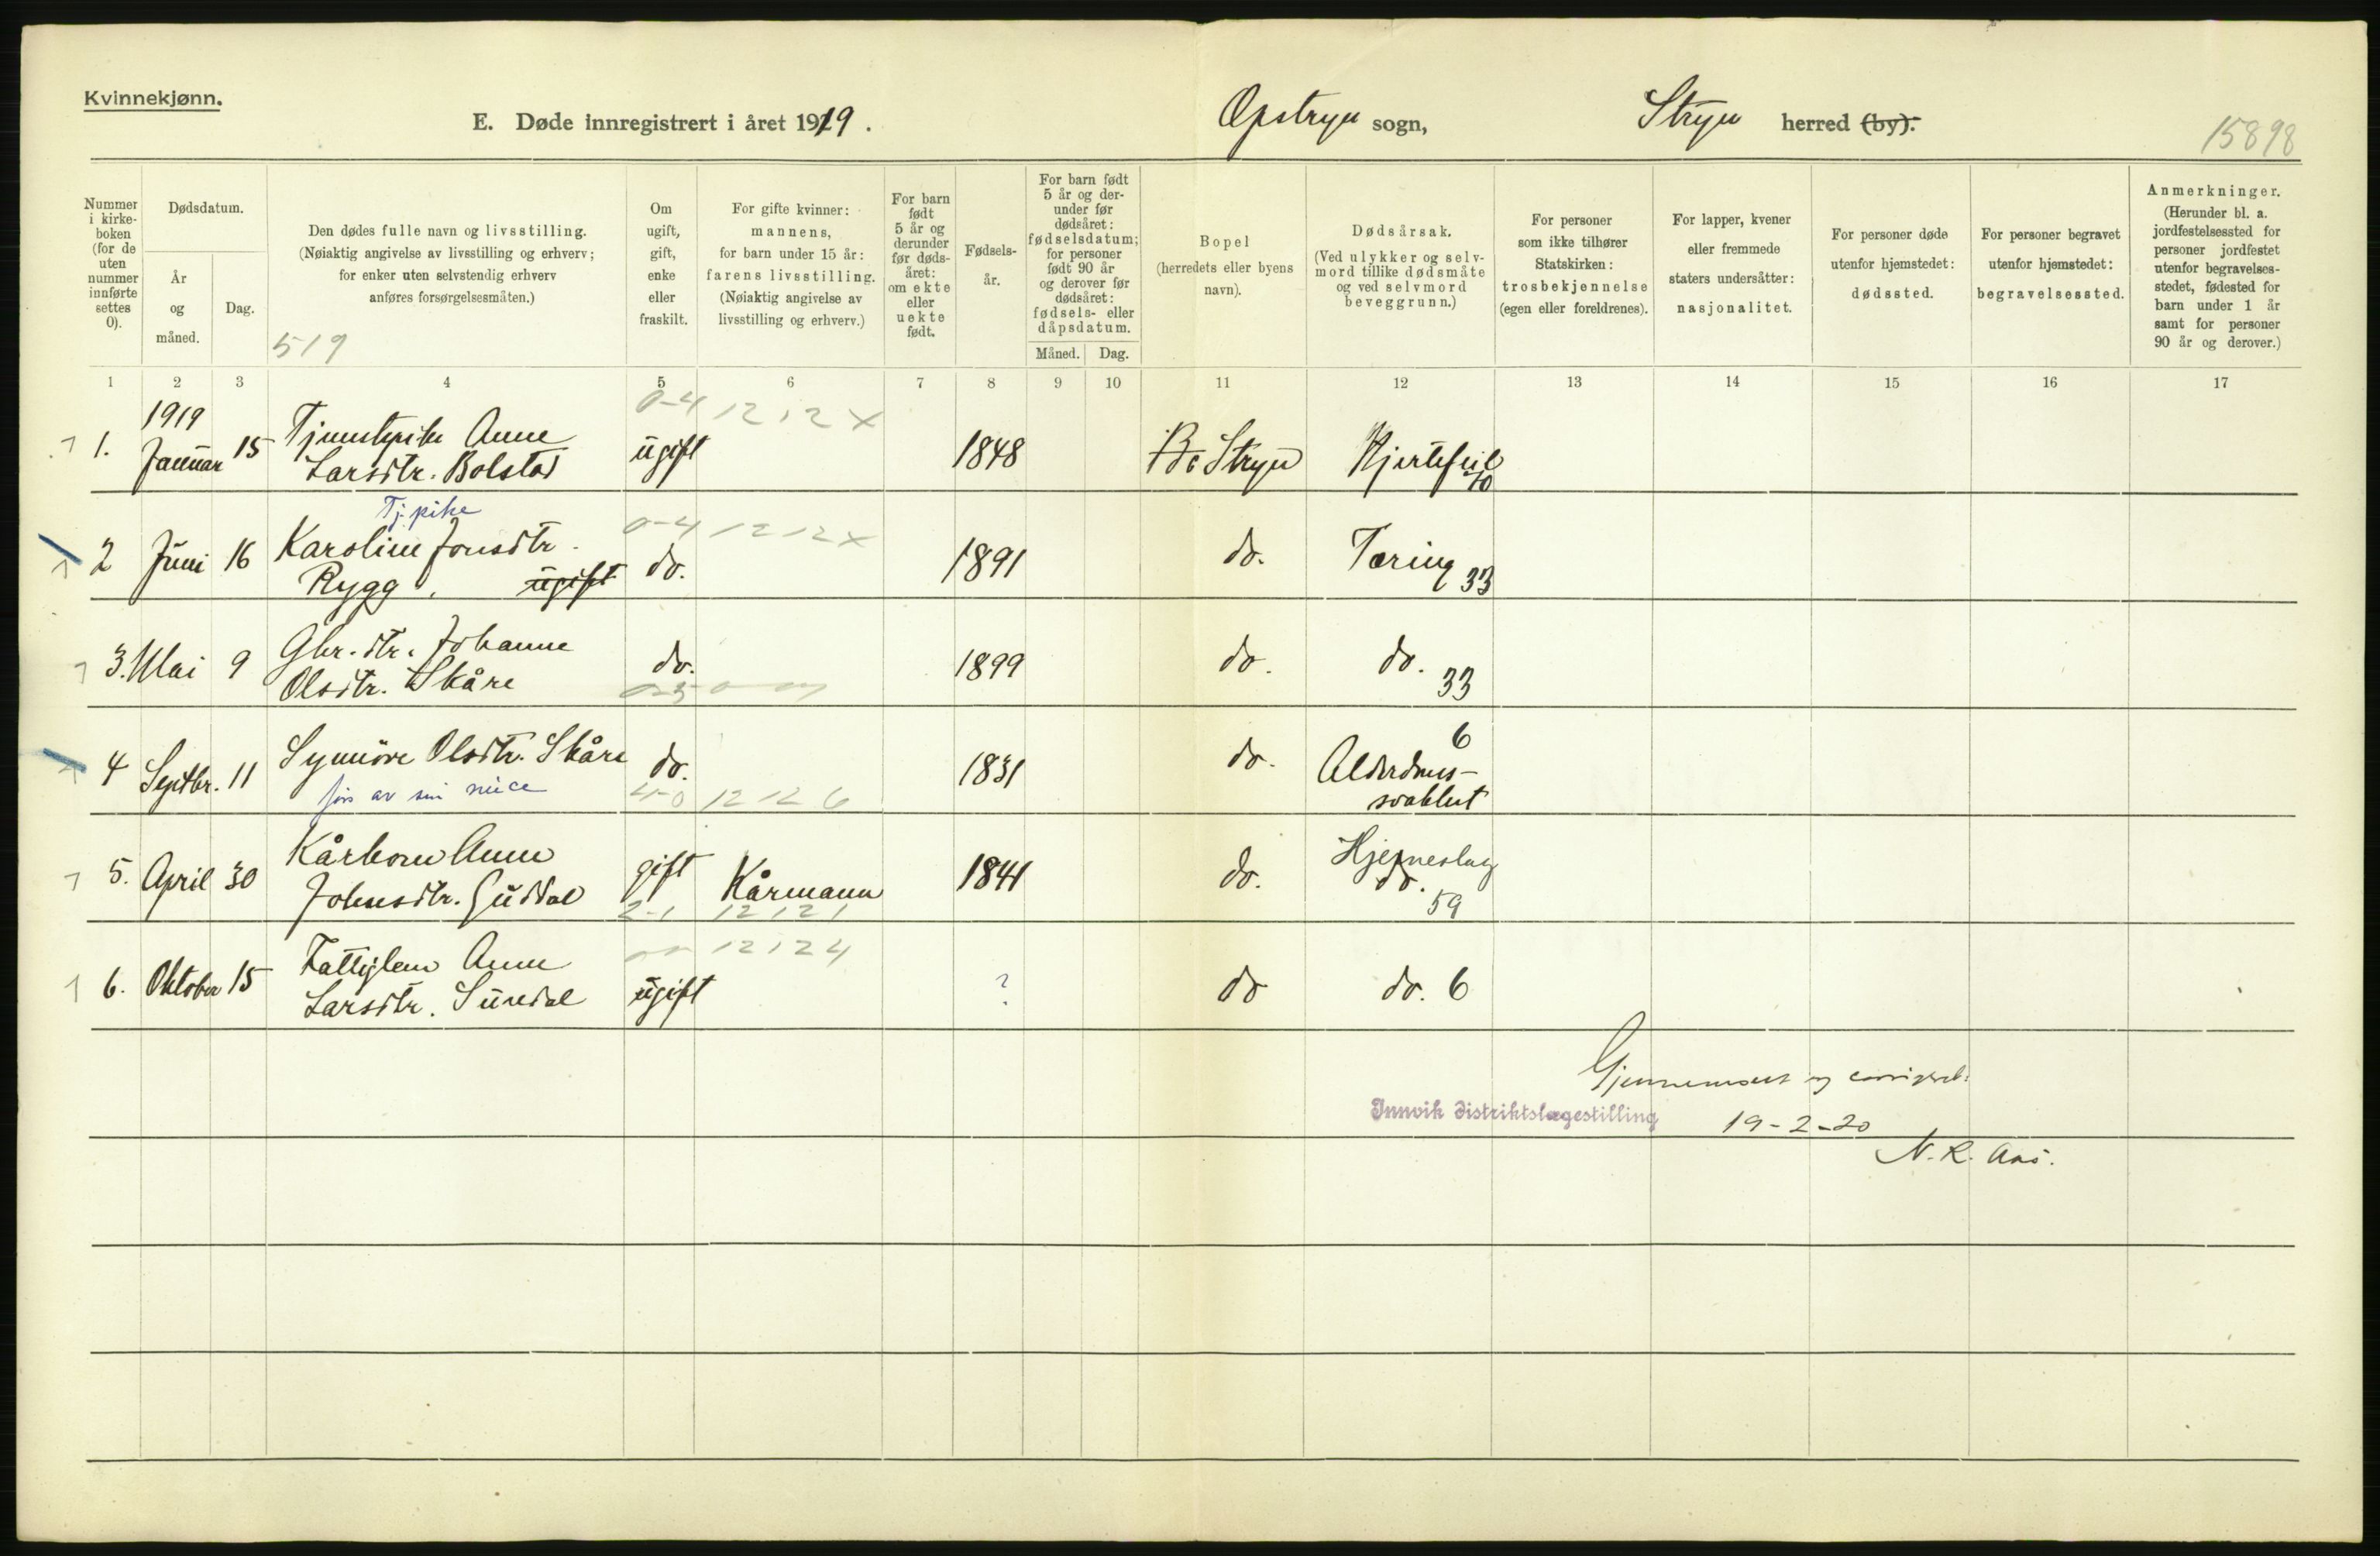 Kvinnekjønn.
E. Døde innregistrert i året 1919.
Opstryn sogn,
Stryn herred (by).
15898
Nummer i kirke- boken (for de uten nummer innførte settes 0).
Dødsdatum.
År og måned.
Dag.
Den dødes fulle navn og livsstilling.
(Nøiaktig angivelse av livsstilling og erhverv;
for enker uten selvstendig erhverv
anføres forsørgelsesmåten.)
519
Om ugift, gift, enke eller fraskilt.
For gifte kvinner:
mannens,
for barn under 15 år:
farens livsstilling.
(Nøiaktig angivelse av
livsstilling og erhverv.)
For barn født 5 år og derunder før døds- året: om ekte eller uekte født.
Fødsels- år.
For barn født 5 år og der- under før dødsåret: fødselsdatum; for personer født 90 år og derover før dødsåret: fødsels- eller dåpsdatum.
Måned. Dag.
Bopel
(herredets eller byens
navn).
Dødsårsak.
(Ved ulykker og selv-
mord tillike dødsmåte
og ved selvmord
beveggrunn.)
For personer
som ikke tilhører
Statskirken:
trosbekjennelse
(egen eller foreldrenes).
For lapper, kvener
eller fremmede
staters undersåtter:
nasjonalitet.
For personer døde
utenfor hjemstedet:
dødssted.
For personer begravet
utenfor hjemstedet:
begravelsessted.
Anmerkninger.
(Herunder bl. a.
jordfestelsessted for
personer jordfestet
utenfor begravelses-
stedet, fødested for
barn under 1 år
samt for personer
90 år og derover.)
1 2 3 4 5 6 7 8 9 10 11 12 13 14 15 16 17
1919
0-4 12 12 X
1. Januar 15 Tjenstepike Anne
Larsdtr. Bolstad ugift 1848 Stryn Hjertefeil
Tj. pike
0-4 12 12 X
2 Juni 16 Karoline Jonsdtr.
Rygg, ugift do. 1891 do. Tæring 33
3. Mai 9 Gbr. dtr. Johanne
Olsdtr. Skåre do. 1899 do. do. 33
4 Septbr. 11 Synnöve Olsdtr. Skåre do. 1831 do. 6
Alderdoms-
svakhet
av sin niece
4-0 12 12 6
5. April 30 Kårkone Anne
Johnsdtr. Guddal gift Kårmann 1841 do. Hjerneslag
do.
59
2-1 12 12 1
12 12 4
6. Oktober 15 Fattiglem Anne
Larsdtr. Sundal ugift ? do do. 6
Gjennemset og corrigeret.
Innvik distriktslægestilling 19-2-20
N. R. Aas.